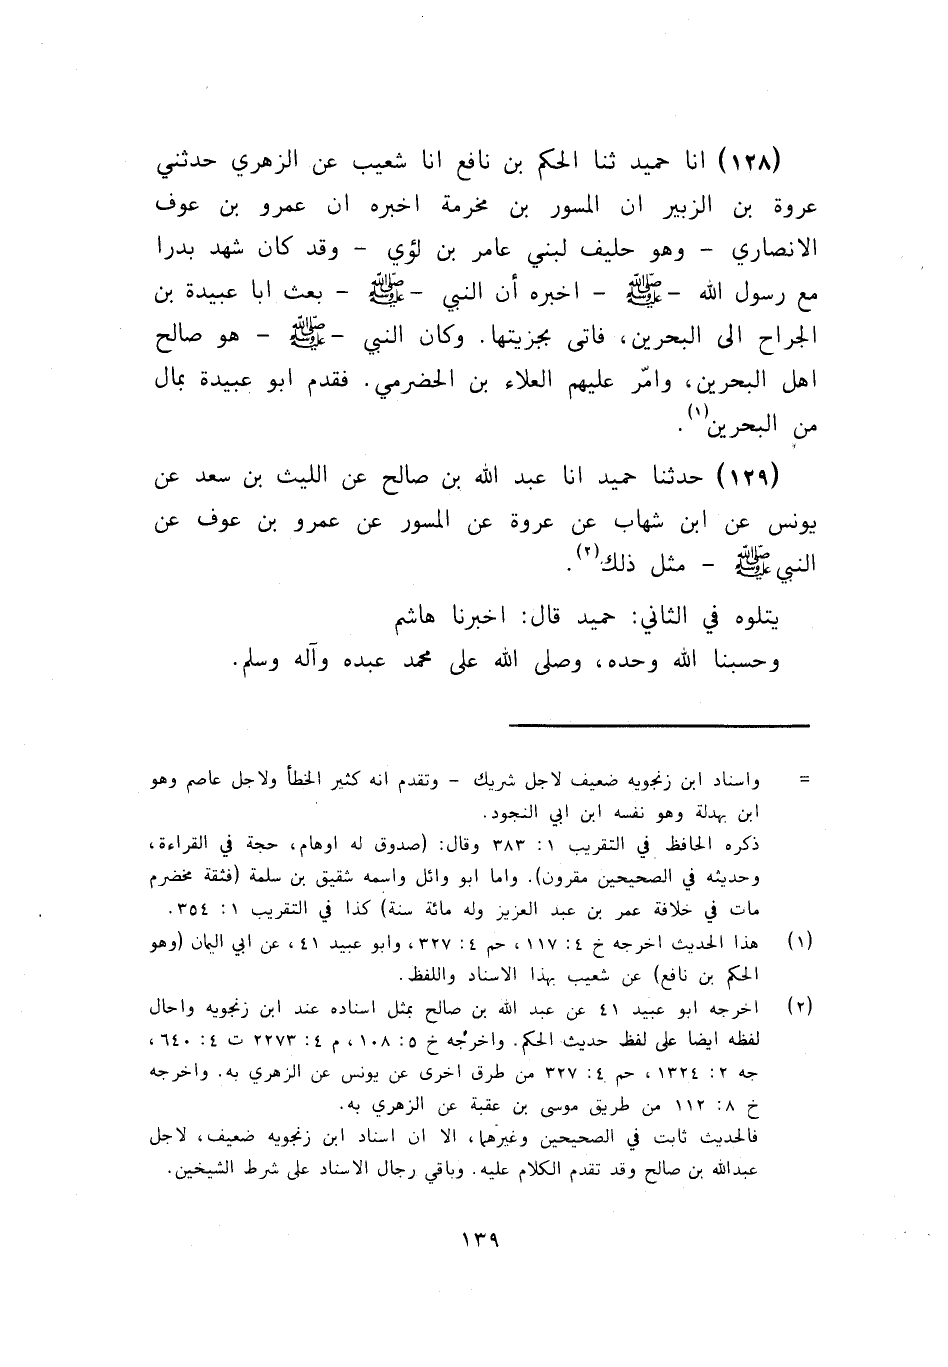 (١٢٨) انا حميد ثنا الحكم بن نافع انا شعيب عن الزهري حدثني
عروة بن الزبير ان المسور بن مخرمة اخبره ان عمرو بن عوف
الانصاري - وهو حليف لبني عامر بن لؤي - وقد كان شهد بدرا
مع رسول الله -ﷺ - اخبره أن النبي -ﷺ - بعث ابا عبيدة بن
الجراح الى البحرين، فاتى بجزيتها. وكان النبي -ﷺ - هو صالح
اهل البحرين، وامّر عليهم العلاء بن الحضرمي. فقدم ابو عبيدة بمال
من البحرين(١).
(١٢٩) حدثنا حميد انا عبد الله بن صالح عن الليث بن سعد عن
يونس عن ابن شهاب عن عروة عن المسور عن عمرو بن عوف عن
النبي ﷺ - مثل ذلك(٢).
يتلوه في الثاني: حميد قال: اخبرنا هاشم
وحسبنا الله وحده، وصلى الله على محمد عبده وآله وسلم.
= واسناد ابن زنجويه ضعيف لاجل شريك - وتقدم انه كثير الخطأ ولاجل عاصم وهو
ابن بهدلة وهو نفسه ابن ابي النجود.
ذكره الحافظ في التقريب ١: ٣٨٣ وقال: (صدوق له اوهام، حجة في القراءة،
وحديثه في الصحيحين مقرون). واما ابو وائل واسمه شقيق بن سلمة (فثقة مخضرم
مات في خلافة عمر بن عبد العزيز وله مائة سنة) كذا في التقريب ١: ٣٥٤.
(١) هذا الحديث اخرجه خ ٤: ١١٧، حم ٤: ٣٢٧، وابو عبيد ٤١، عن ابي اليمان (وهو
الحكم بن نافع) عن شعيب بهذا الاسناد واللفظ.
(٢) اخرجه ابو عبيد ٤١ عن عبد الله بن صالح بمثل اسناده عند ابن زنجويه واحال
لفظه ايضا على لفظ حديث الحكم. واخرجه خ ٥: ١٠٨، م ٤: ٢٢٧٣ ت ٤: ٦٤٠،
جه ٢: ١٣٢٤، حم ٤: ٣٢٧ من طرق اخرى عن يونس عن الزهري به. واخرجه
خ ٨: ١١٢ من طريق موسى بن عقبة عن الزهري به.
فالحديث ثابت في الصحيحين وغيرهما، الا ان اسناد ابن زنجويه ضعيف، لاجل
عبدالله بن صالح وقد تقدم الكلام عليه. وباقي رجال الاسناد على شرط الشيخين.
١٣٩